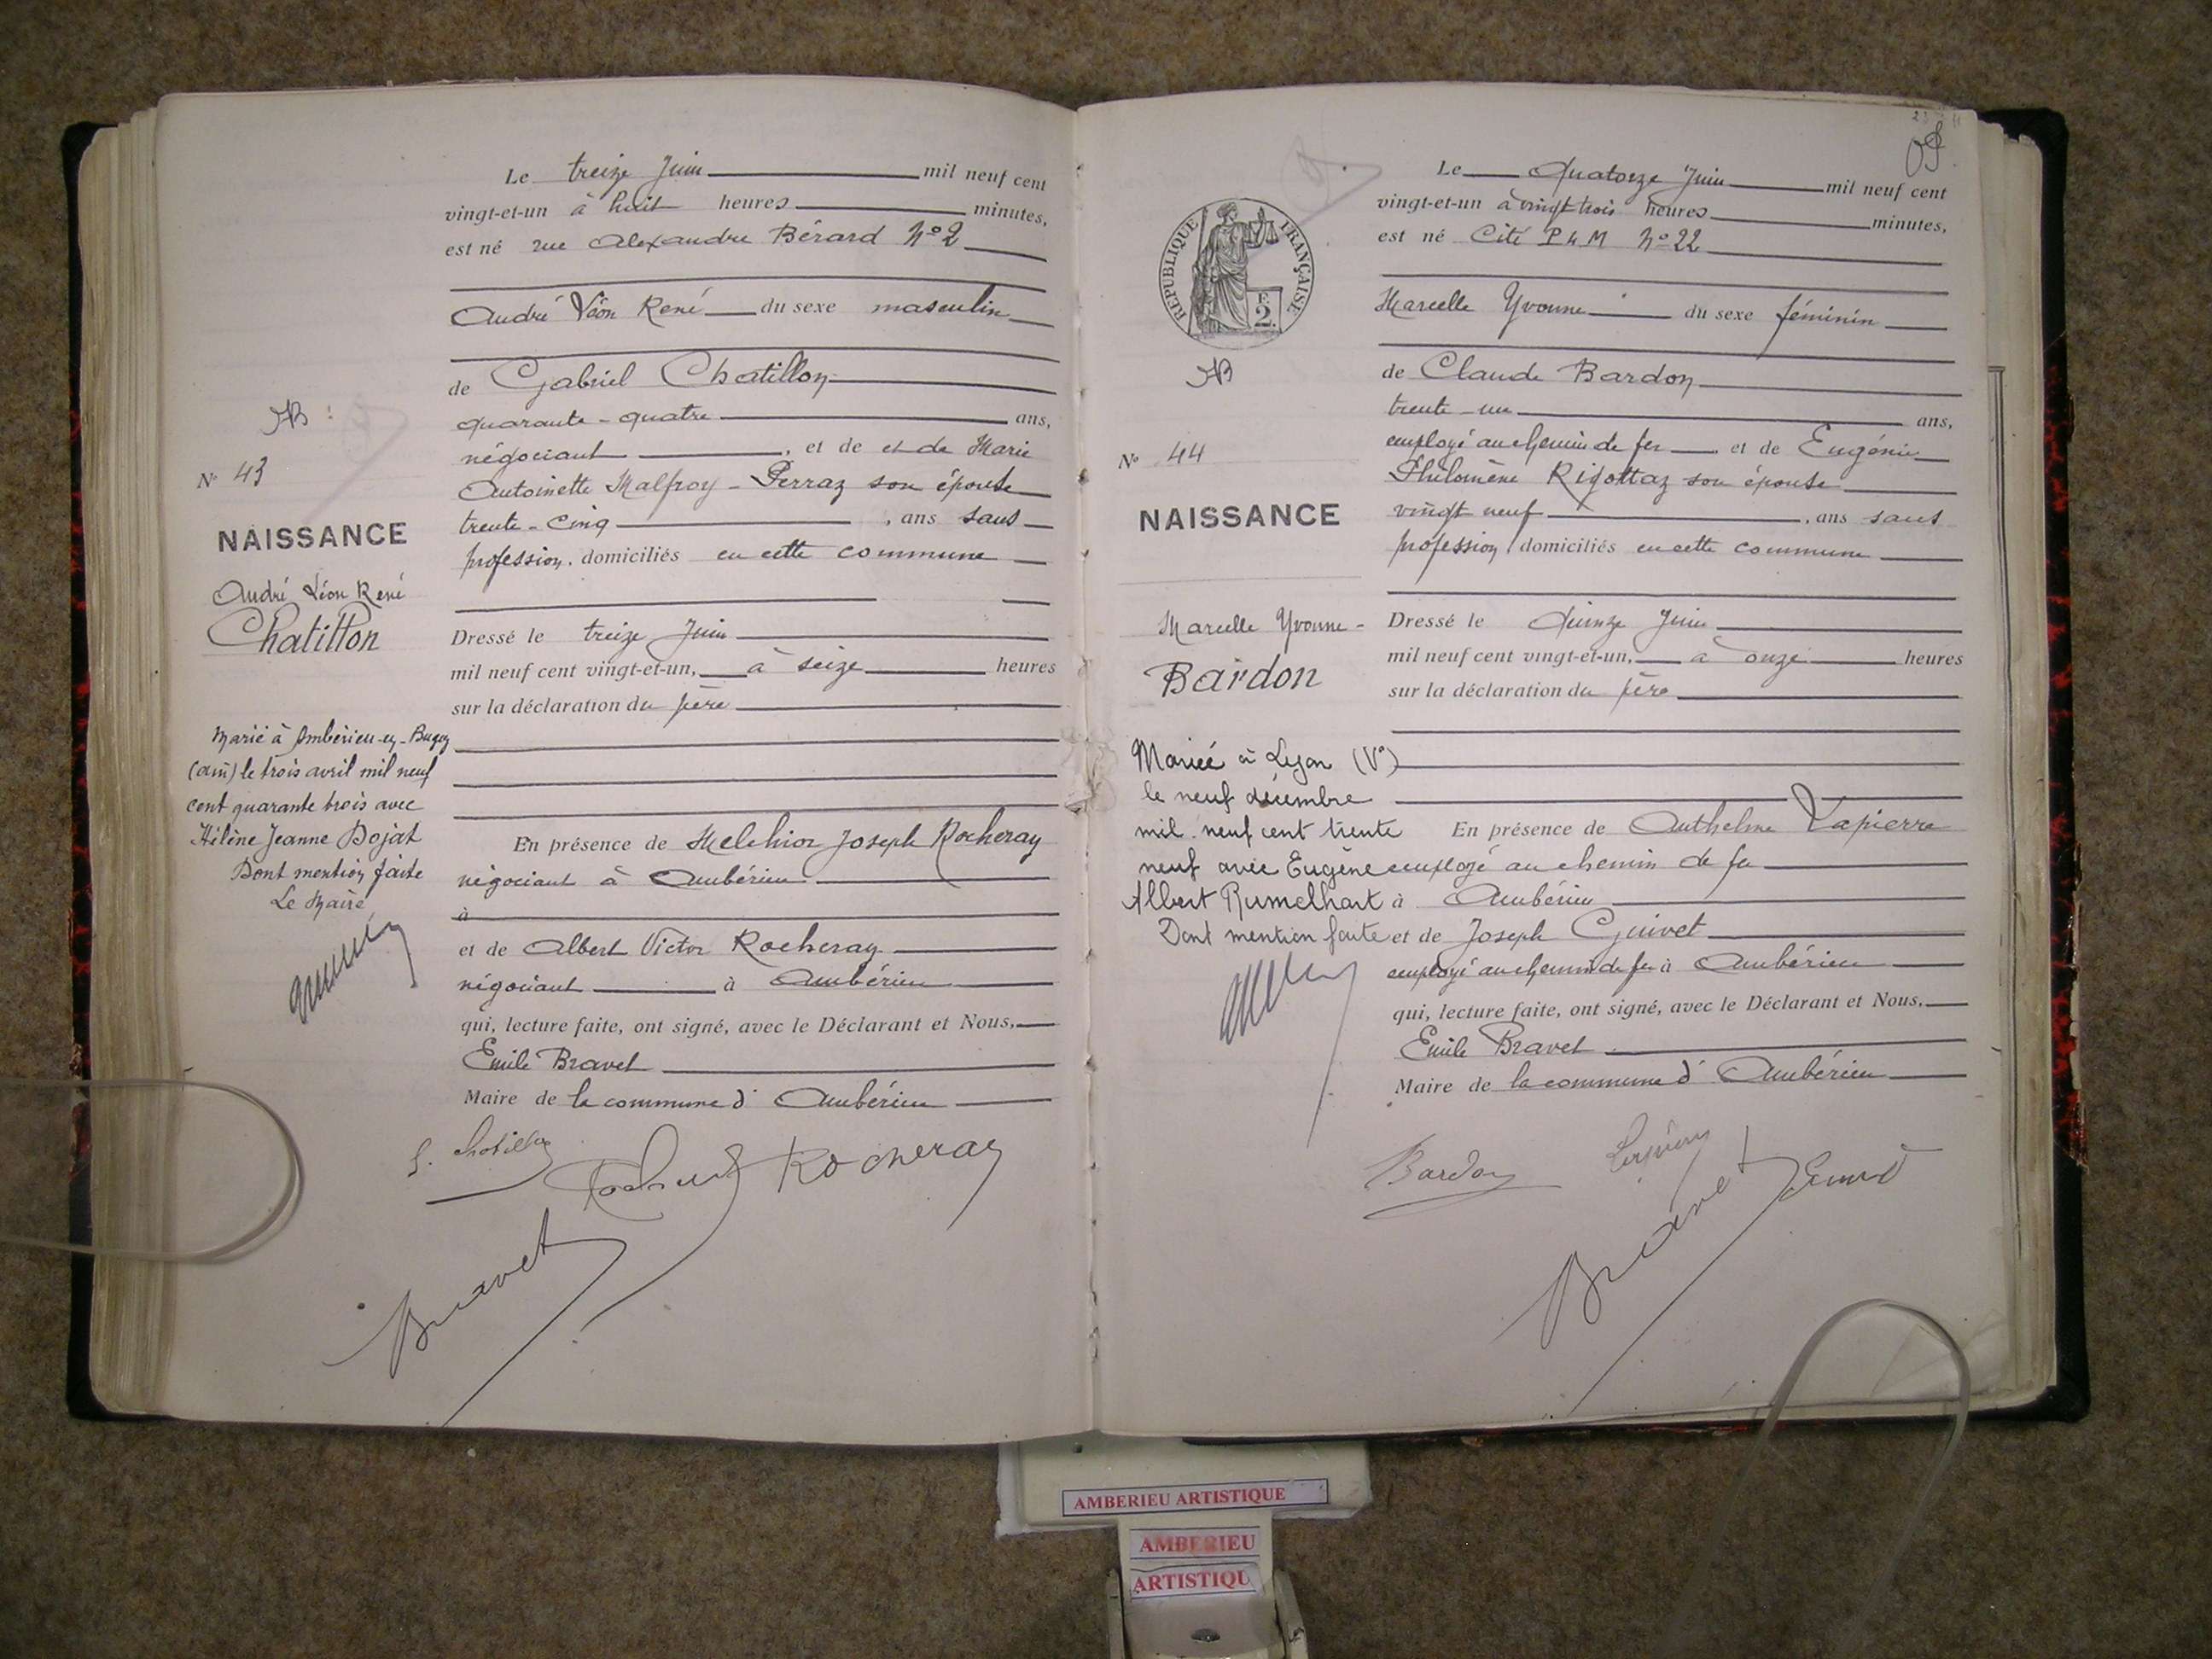 Le treize Juin mil neuf cent
vingt-et-un à huit heures minutes,
est né rue Alexandre Bérard N° 2
André Léon René du sexe masculin
de Gabriel Chatillon
quarante-quatre ans,
négociant, et de et de Marie
Antoinette Malfroy-Perraz son épouse
trente-cinq, ans sans
profession. domiciliés en cette commune
Dressé le treize Juin
mil neuf cent vingt-et-un, à seize heures
sur la déclaration du père
En présence de Melchior Joseph Rocheray
négociant à Ambérieu
à
et de Albert Victor Rocheray
négociant à Ambérieu
qui, lecture faite, ont signé, avec le Déclarant et Nous,
Emile Bravet
Maire de la commune d'Ambérieu
G. Chatillon
Rocheray
Bravet
N° 43
NAISSANCE
André Léon René
Chatillon
Marié à Ambérieu-en-Bugey
(ain) le trois avril mil neuf
cent quarante trois avec
Hélène Jeanne Dojat
Dont mention faite
Le Maire
Le Quatorze Juin mil neuf cent
vingt-et-un à vingt trois heures minutes,
est né Cité PLM N° 22
Marcelle Yvonne du sexe féminin
de Claude Bardon
trente-un ans,
employé au chemin de fer et de Eugénie
Philomène Rigottaz son épouse
vingt neuf, ans sans
profession domiciliés en cette commune
Dressé le Quinze Juin
mil neuf cent vingt-et-un, à onze heures
sur la déclaration du père
En présence de Anthelme Lapierre
employé au chemin de fer
à Ambérieu
et de Joseph Guivet
employé au chemin de fer à Ambérieu
qui, lecture faite, ont signé, avec le Déclarant et Nous,
Emile Bravet
Maire de la commune d'Ambérieu
Bardon
Bravet
REPUBLIQUE FRANÇAISE
F.
2.
N° 44
NAISSANCE
Marcelle Yvonne-
Bardon
Mariée à Lyon (V°)
le neuf décembre
mil neuf cent trente
neuf avec Eugène
Albert Rumelhart
Dont mention faite
AMBERIEU ARTISTIQUE
AMBERIEU
ARTISTIQU